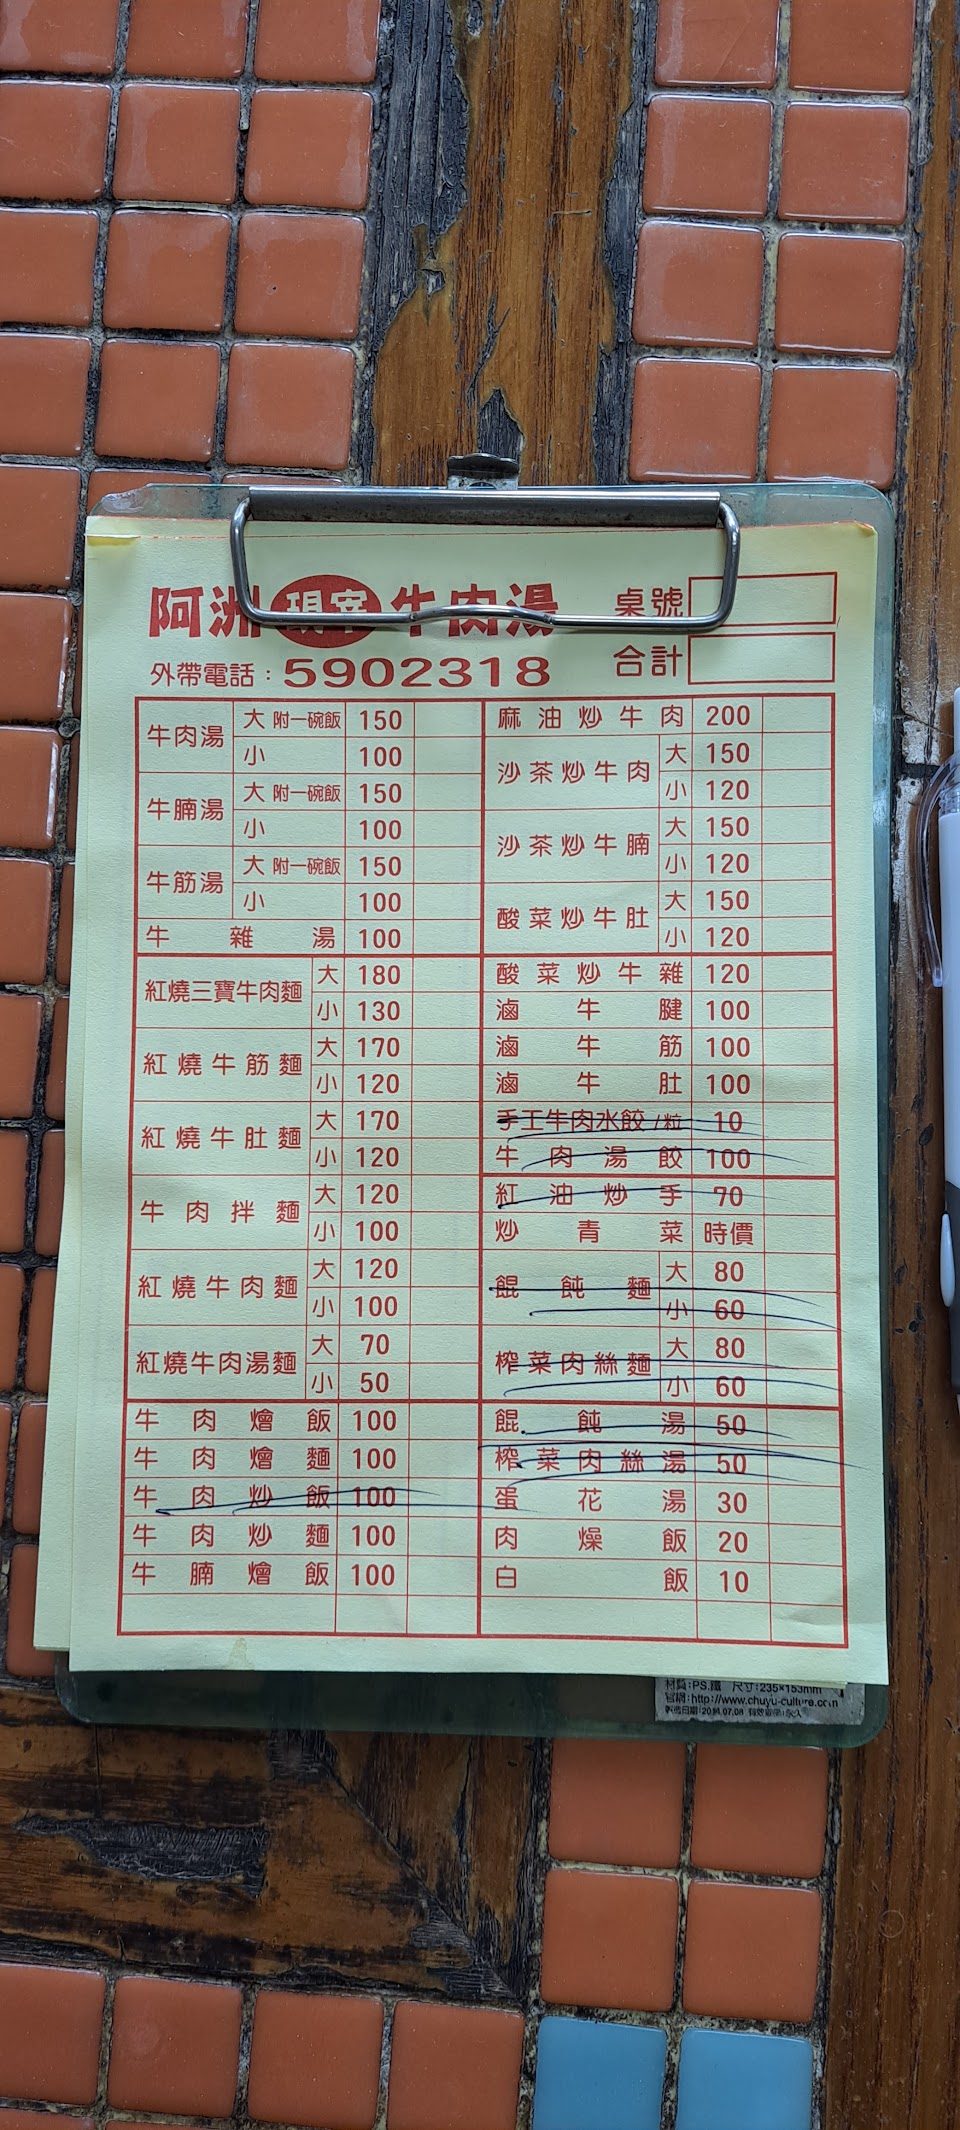 阿洲現宰牛肉湯
桌號
外帶電話：5902318
合計
牛肉湯 大 附一碗飯 150
小 100
牛腩湯 大 附一碗飯 150
小 100
牛筋湯 大 附一碗飯 150
小 100
牛雜湯 100
紅燒三寶牛肉麵 大 180
小 130
紅燒牛筋麵 大 170
小 120
紅燒牛肚麵 大 170
小 120
牛肉拌麵 大 120
小 100
紅燒牛肉麵 大 120
小 100
紅燒牛肉湯麵 大 70
小 50
牛肉燴飯 100
牛肉燴麵 100
牛肉炒飯 100
牛肉炒麵 100
牛腩燴飯 100
麻油炒牛肉 200
沙茶炒牛肉 大 150
小 120
沙茶炒牛腩 大 150
小 120
酸菜炒牛肚 大 150
小 120
酸菜炒牛雜 120
滷牛腱 100
滷牛筋 100
滷牛肚 100
手工牛肉水餃/粒 10
牛肉湯餃 100
紅油炒手 70
炒青菜 時價
餛飩麵 大 80
小 60
榨菜肉絲麵 大 80
小 60
餛飩湯 50
榨菜肉絲湯 50
蛋花湯 30
肉燥飯 20
白飯 10
材質:PS.鐵 尺寸:235×153mm
官網:http://www.chuyu-culture.com
製造日期:2014.07.08 有效期限:永久